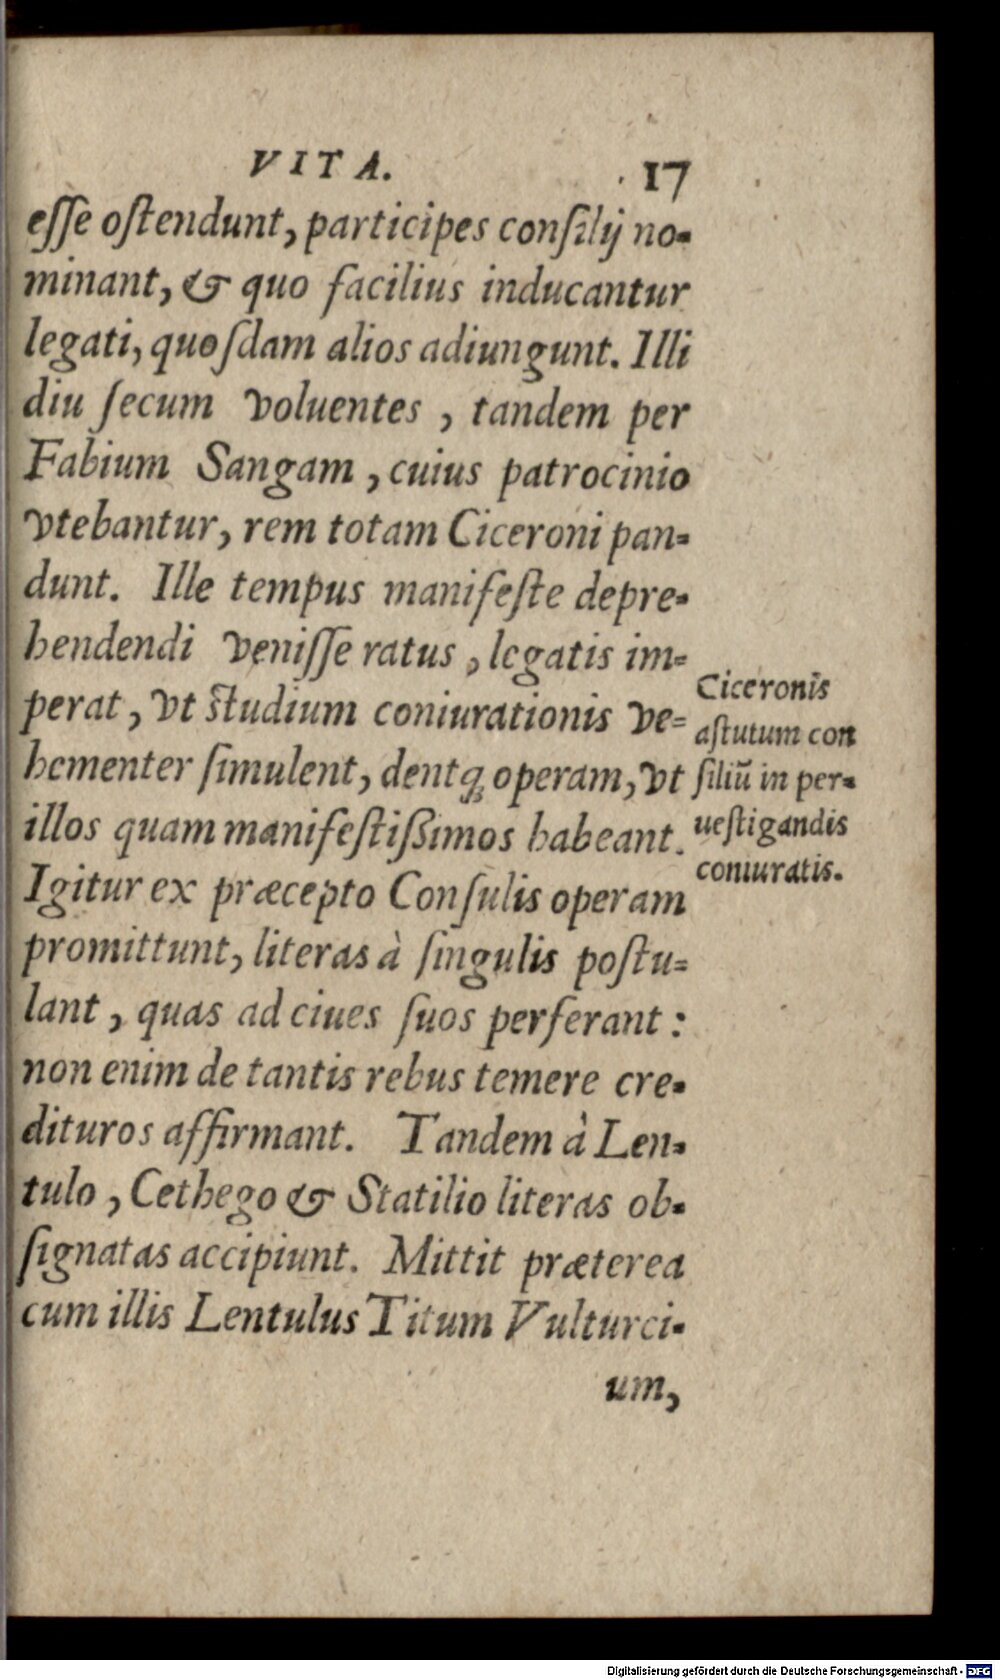 VITA. 17
esse ostendunt, participes consilij no-
minant, & quo facilius inducantur
legati, quosdam alios adiungunt. Illi
diu secum voluentes, tandem per
Fabium Sangam, cuius patrocinio
vtebantur, rem totam Ciceroni pan-
dunt. Ille tempus manifeste depre-
hendendi venisse ratus, legatis im-
perat, vt studium coniurationis ve-
hementer simulent, dentq; operam, vt
illos quam manifestißimos habeant.
Igitur ex præcepto Consulis operam
promittunt, literas à singulis postu-
lant, quas ad ciues suos perferant:
non enim de tantis rebus temere cre-
dituros affirmant. Tandem à Len-
tulo, Cethego & Statilio literas ob-
signatas accipiunt. Mittit præterea
cum illis Lentulus Titum Vulturci-
um,
Ciceronis
astutum con
siliũ in per-
uestigandis
coniuratis.
Digitalisierung gefördert durch die Deutsche Forschungsgemeinschaft - DFG